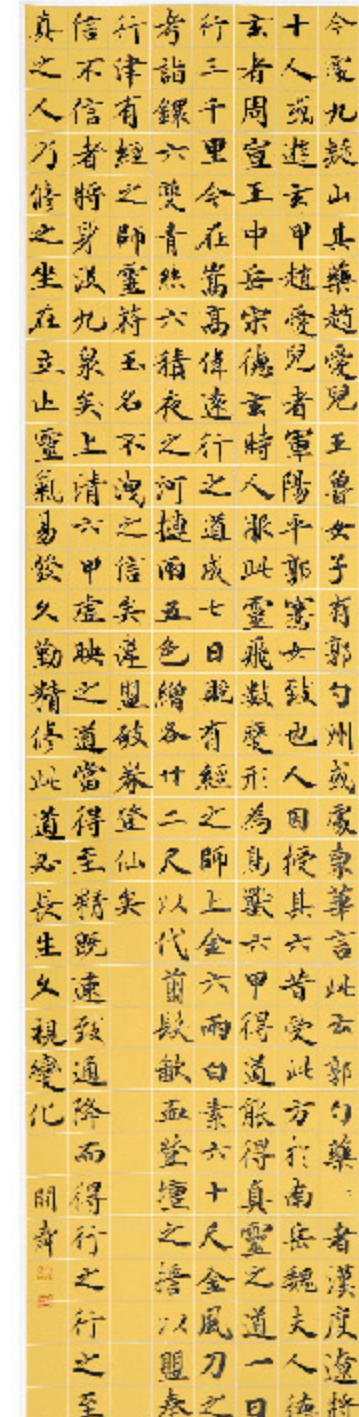 今處九疑山其藥趙愛兒王魯女子有郭勺州或處東華言此云郭勺藥者漢度遼將
十人或遊玄甲趙愛兒者軍陽平郭騫女致也人因授其六昔受此方於南岳魏夫人德
玄者周宣王中岳宋德玄時人服此靈飛數變形為鳥獸六甲得道能得真靈之道一日
行三千里今在嵩高偉遠行之道成七日晚有經之師上金六兩白素六十尺金風刀之
考詣鐶六雙青絲六積夜之河摙雨五色繒各廿二尺以代翦髮歃血登壇之誓以盟奉
行律有經之師靈符玉名不洩之信矣違盟破券登仙矣
信不信者將身沒九泉矣上清六甲虛映之道當得至精既速致通降而得行之行之至
真之人乃修之坐在立止靈氣易發久勤精修此道必長生久視變化
開